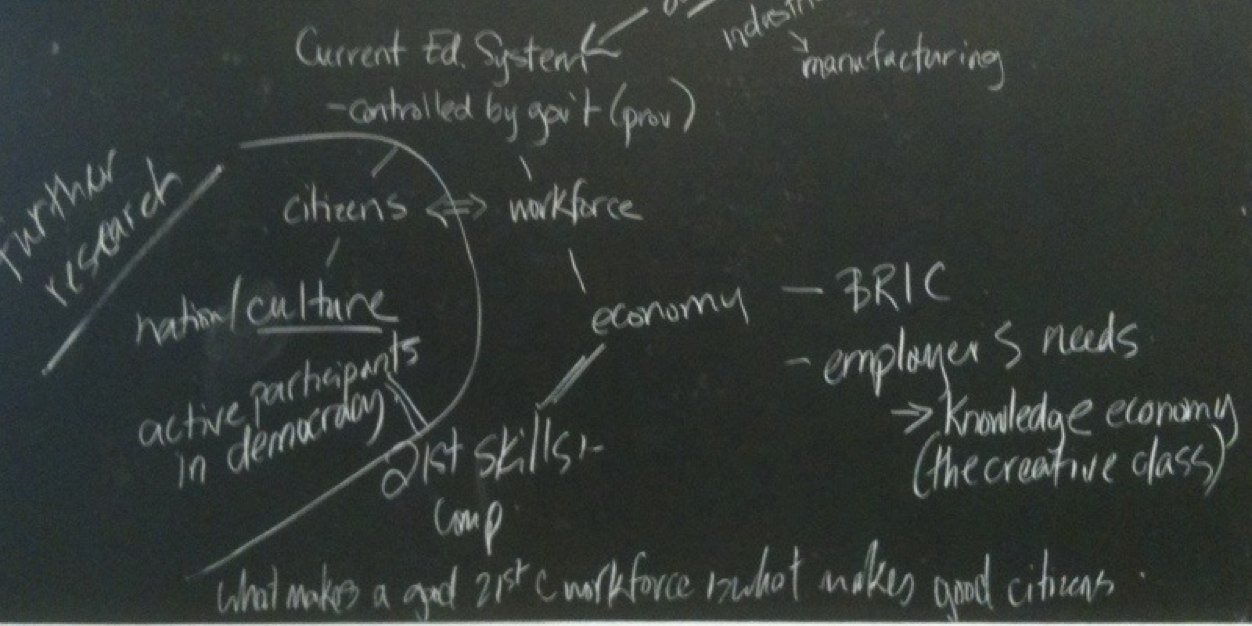 industri
manufacturing
Current Ed. System
-controlled by gov't (prov)
further
research
citizens <=> workforce
nation/culture
economy
- BRIC
- employer's needs
-> knowledge economy
(the creative class)
active participants
in democracy
21st skills +
comp
what makes a good 21st c workforce is what makes good citizens.